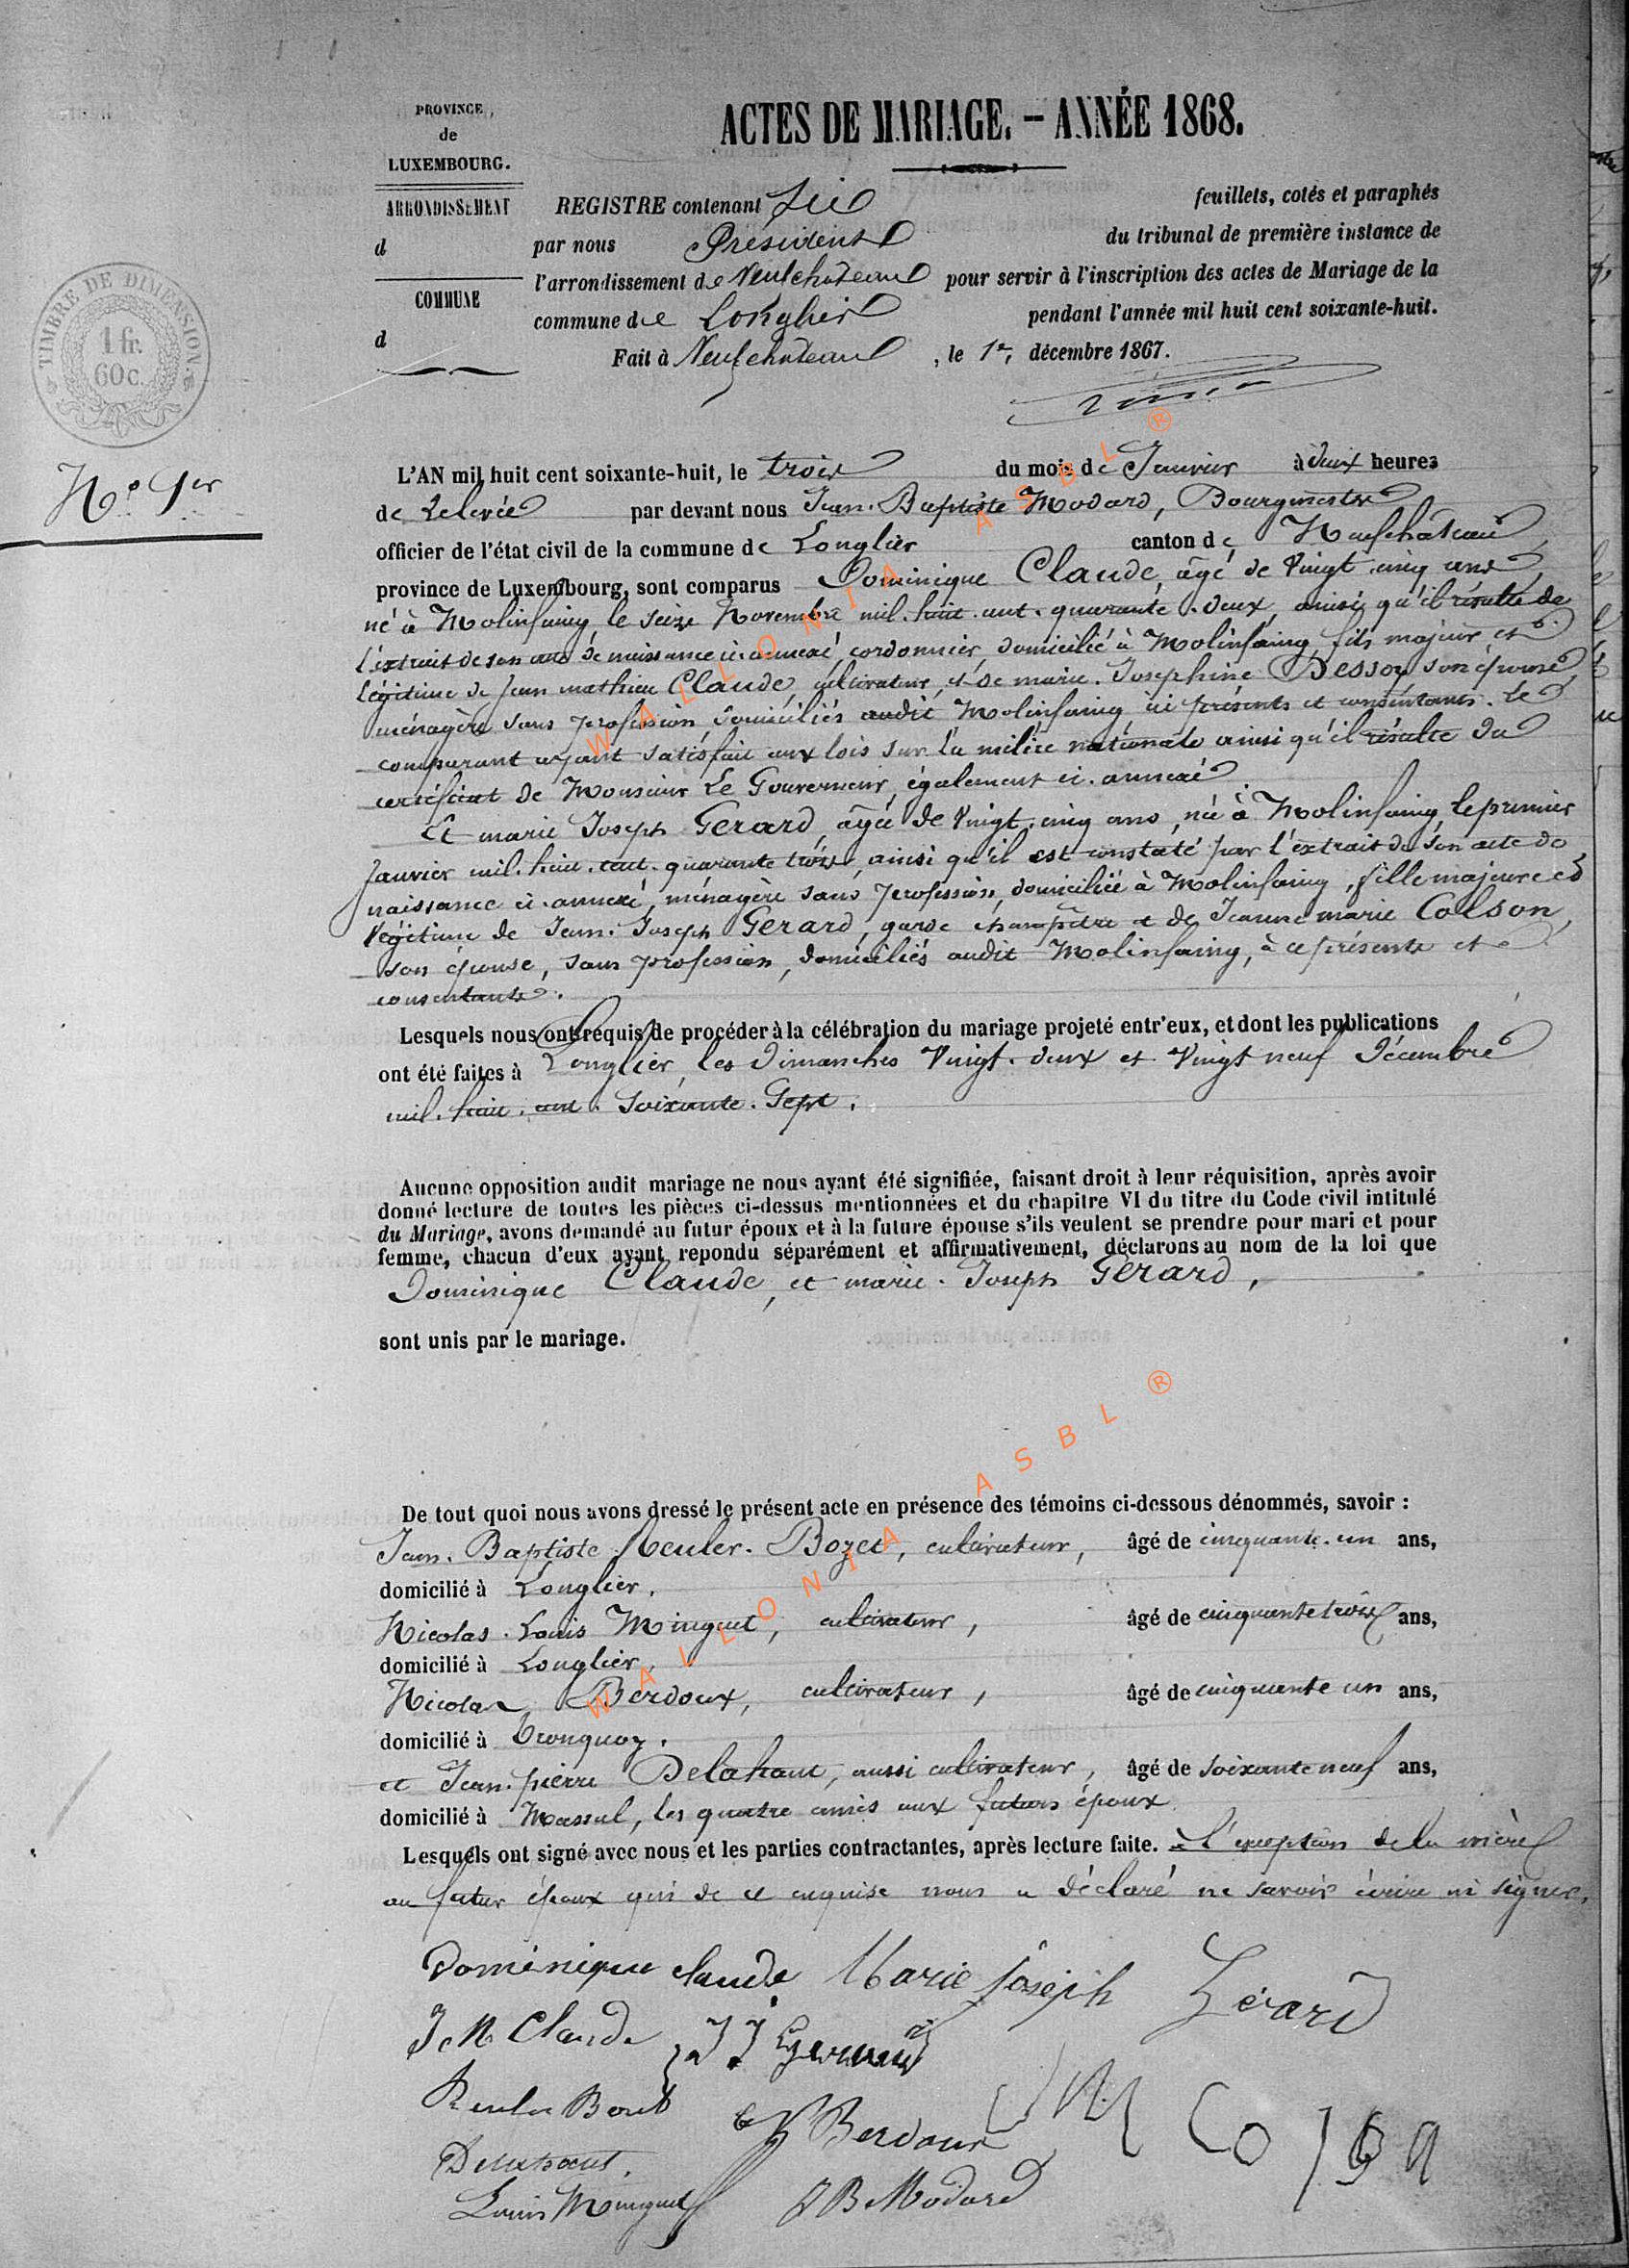 PROVINCE
de
LUXEMBOURG.
ARRONDISSEMENT
d
COMMUNE
d
TIMBRE DE DIMENSION.
1 fr.
60 c.
ACTES DE MARIAGE. – ANNÉE 1868.
REGISTRE contenant Six feuillets, cotés et paraphés
par nous Président du tribunal de première instance de
l'arrondissement de Neufchateau pour servir à l'inscription des actes de Mariage de la
commune de Longlier pendant l'année mil huit cent soixante-huit.
Fait à Neufchateau, le 1er, décembre 1867.
N° 1er
L'AN mil huit cent soixante-huit, le trois du mois de Janvier à deux heures
de Relevée par devant nous Jean-Baptiste Modard, Bourgmestre
officier de l'état civil de la commune de Longlier canton de Neufchâteau
province de Luxembourg, sont comparus Dominique Claude, âgé de Vingt cinq ans,
né à Molinfaing, le seize Novembre mil-huit-cent-quarante-deux, ainsi qu'il résulte de
l'extrait de son acte de naissance ci-annexé, cordonnier, domicilié à Molinfaing, fils majeur et
légitime de Jean mathieu Claude, cultivateur, et de marie-Josephine Dessoy son épouse,
ménagère sans profession, domiciliés audit Molinfaing, ici présents et consentants. Le
comparant ayant satisfait aux lois sur la milice nationale ainsi qu'il résulte du
certificat de Monsieur Le Gouverneur, également ci-annexé.
Et marie Joseph Gerard, âgée de Vingt-cinq ans, née à Molinfaing, le premier
Janvier mil-huit-cent-quarante trois, ainsi qu'il est constaté par l'extrait de son acte de
naissance ci-annexé, ménagère sans profession, domiciliée à Molinfaing, fille majeure et
légitime de Jean-Joseph Gerard, garde champêtre et de Jeanne marie Colson,
son épouse, sans profession, domiciliés audit Molinfaing, à ce présents et
consentants.
Lesquels nous ont requis de procéder à la célébration du mariage projeté entr'eux, et dont les publications
ont été faites à Longlier, les Dimanches Vingt-deux et Vingt neuf Décembre
mil-huit-cent-Soixante-Sept.
Aucune opposition audit mariage ne nous ayant été signifiée, faisant droit à leur réquisition, après avoir
donné lecture de toutes les pièces ci-dessus mentionnées et du chapitre VI du titre du Code civil intitulé
du Mariage, avons demandé au futur époux et à la future épouse s'ils veulent se prendre pour mari et pour
femme, chacun d'eux ayant repondu séparément et affirmativement, déclarons au nom de la loi que
Dominique Claude, et marie-Joseph Gérard,
sont unis par le mariage.
De tout quoi nous avons dressé le présent acte en présence des témoins ci-dessous dénommés, savoir :
Jean-Baptiste Reuler-Bozet, cultivateur, âgé de cinquante-un ans,
domicilié à Longlier.
Nicolas-Louis Minguet, cultivateur, âgé de cinquante trois ans,
domicilié à Longlier.
Nicolas Berdoux, cultivateur, âgé de cinquante un ans,
domicilié à Tronquoy.
et Jean-pierre Delahaut, aussi cultivateur, âgé de soixante neuf ans,
domicilié à Massul, les quatre amis aux futurs époux
Lesquels ont signé avec nous et les parties contractantes, après lecture faite. à l'exception de la mère
au futur époux qui de ce enquise nous a déclaré ne savoir écrire ni signer.
Dominique claude Marie joseph Gérard
J M Claude J J Gerard
Reuler Bozet N Berdoux J M Colson
Delahaut.
Louis Minguet J B Modard
WALLONIA ASBL ®
WALLONIA ASBL ®